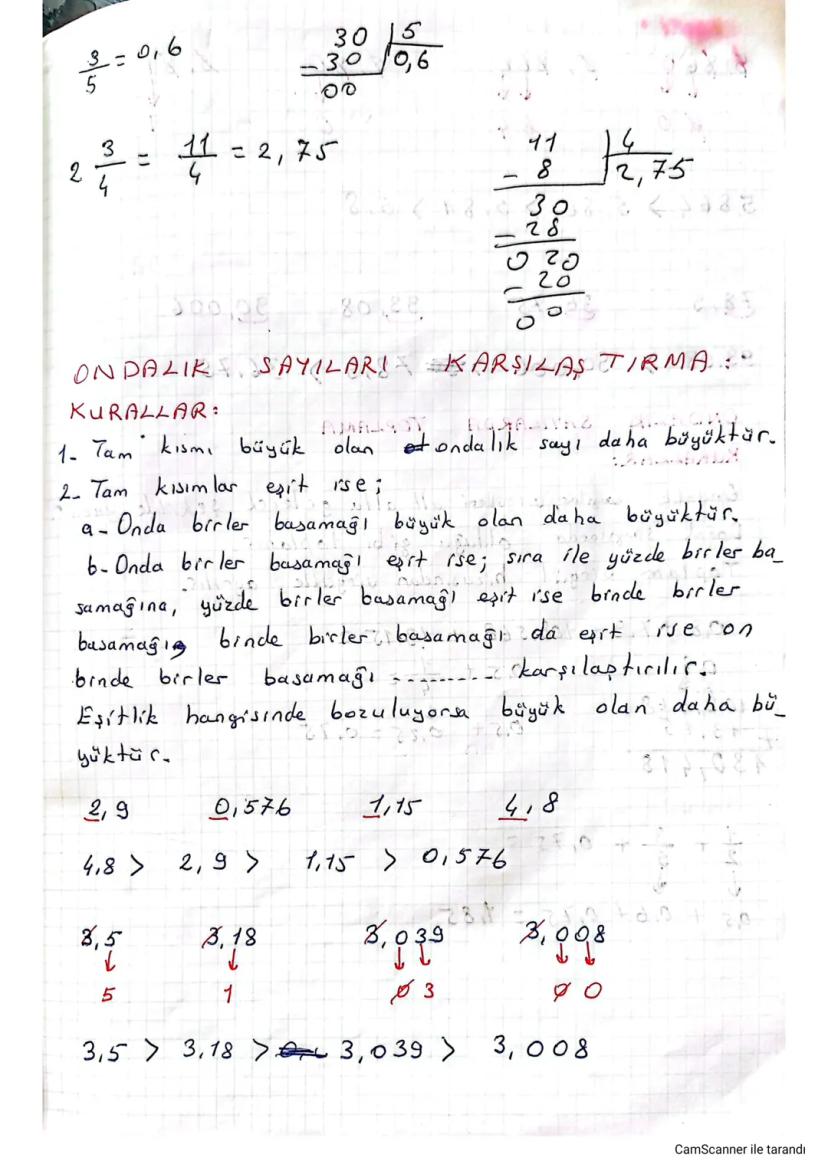 3/5 = 0,6
30 | 5
- 30 0,6
00
2 3/4 = 11/4 = 2,75
11 | 4
- 8 2,75
30
- 28
0 20
- 20
00
ONDALIK SAYILARI KARŞILAŞTIRMA:
KURALLAR:
1- Tam kısmı büyük olan ondalık sayı daha büyüktür.
2- Tam kısımlar eşit ise;
a- Onda birler basamağı büyük olan daha büyüktür.
b- Onda birler basamağı eşit ise; sıra ile yüzde birler ba_
samağına, yüzde birler basamağı eşit ise binde birler
basamağı, binde birler basamağı da eşit ise on
binde birler basamağı .......... karşılaştırılır.
Eşitlik hangisinde bozuluyorsa büyük olan daha bü_
yüktür.
2,9 0,576 1,15 4,8
4,8 > 2,9 > 1,15 > 0,576
3,5 3,18 3,039 3,008
↓ ↓ ↓ ↓ ↓ ↓
5 1 0 3 0 0
3,5 > 3,18 > 3,039 > 3,008
CamScanner ile tarandı